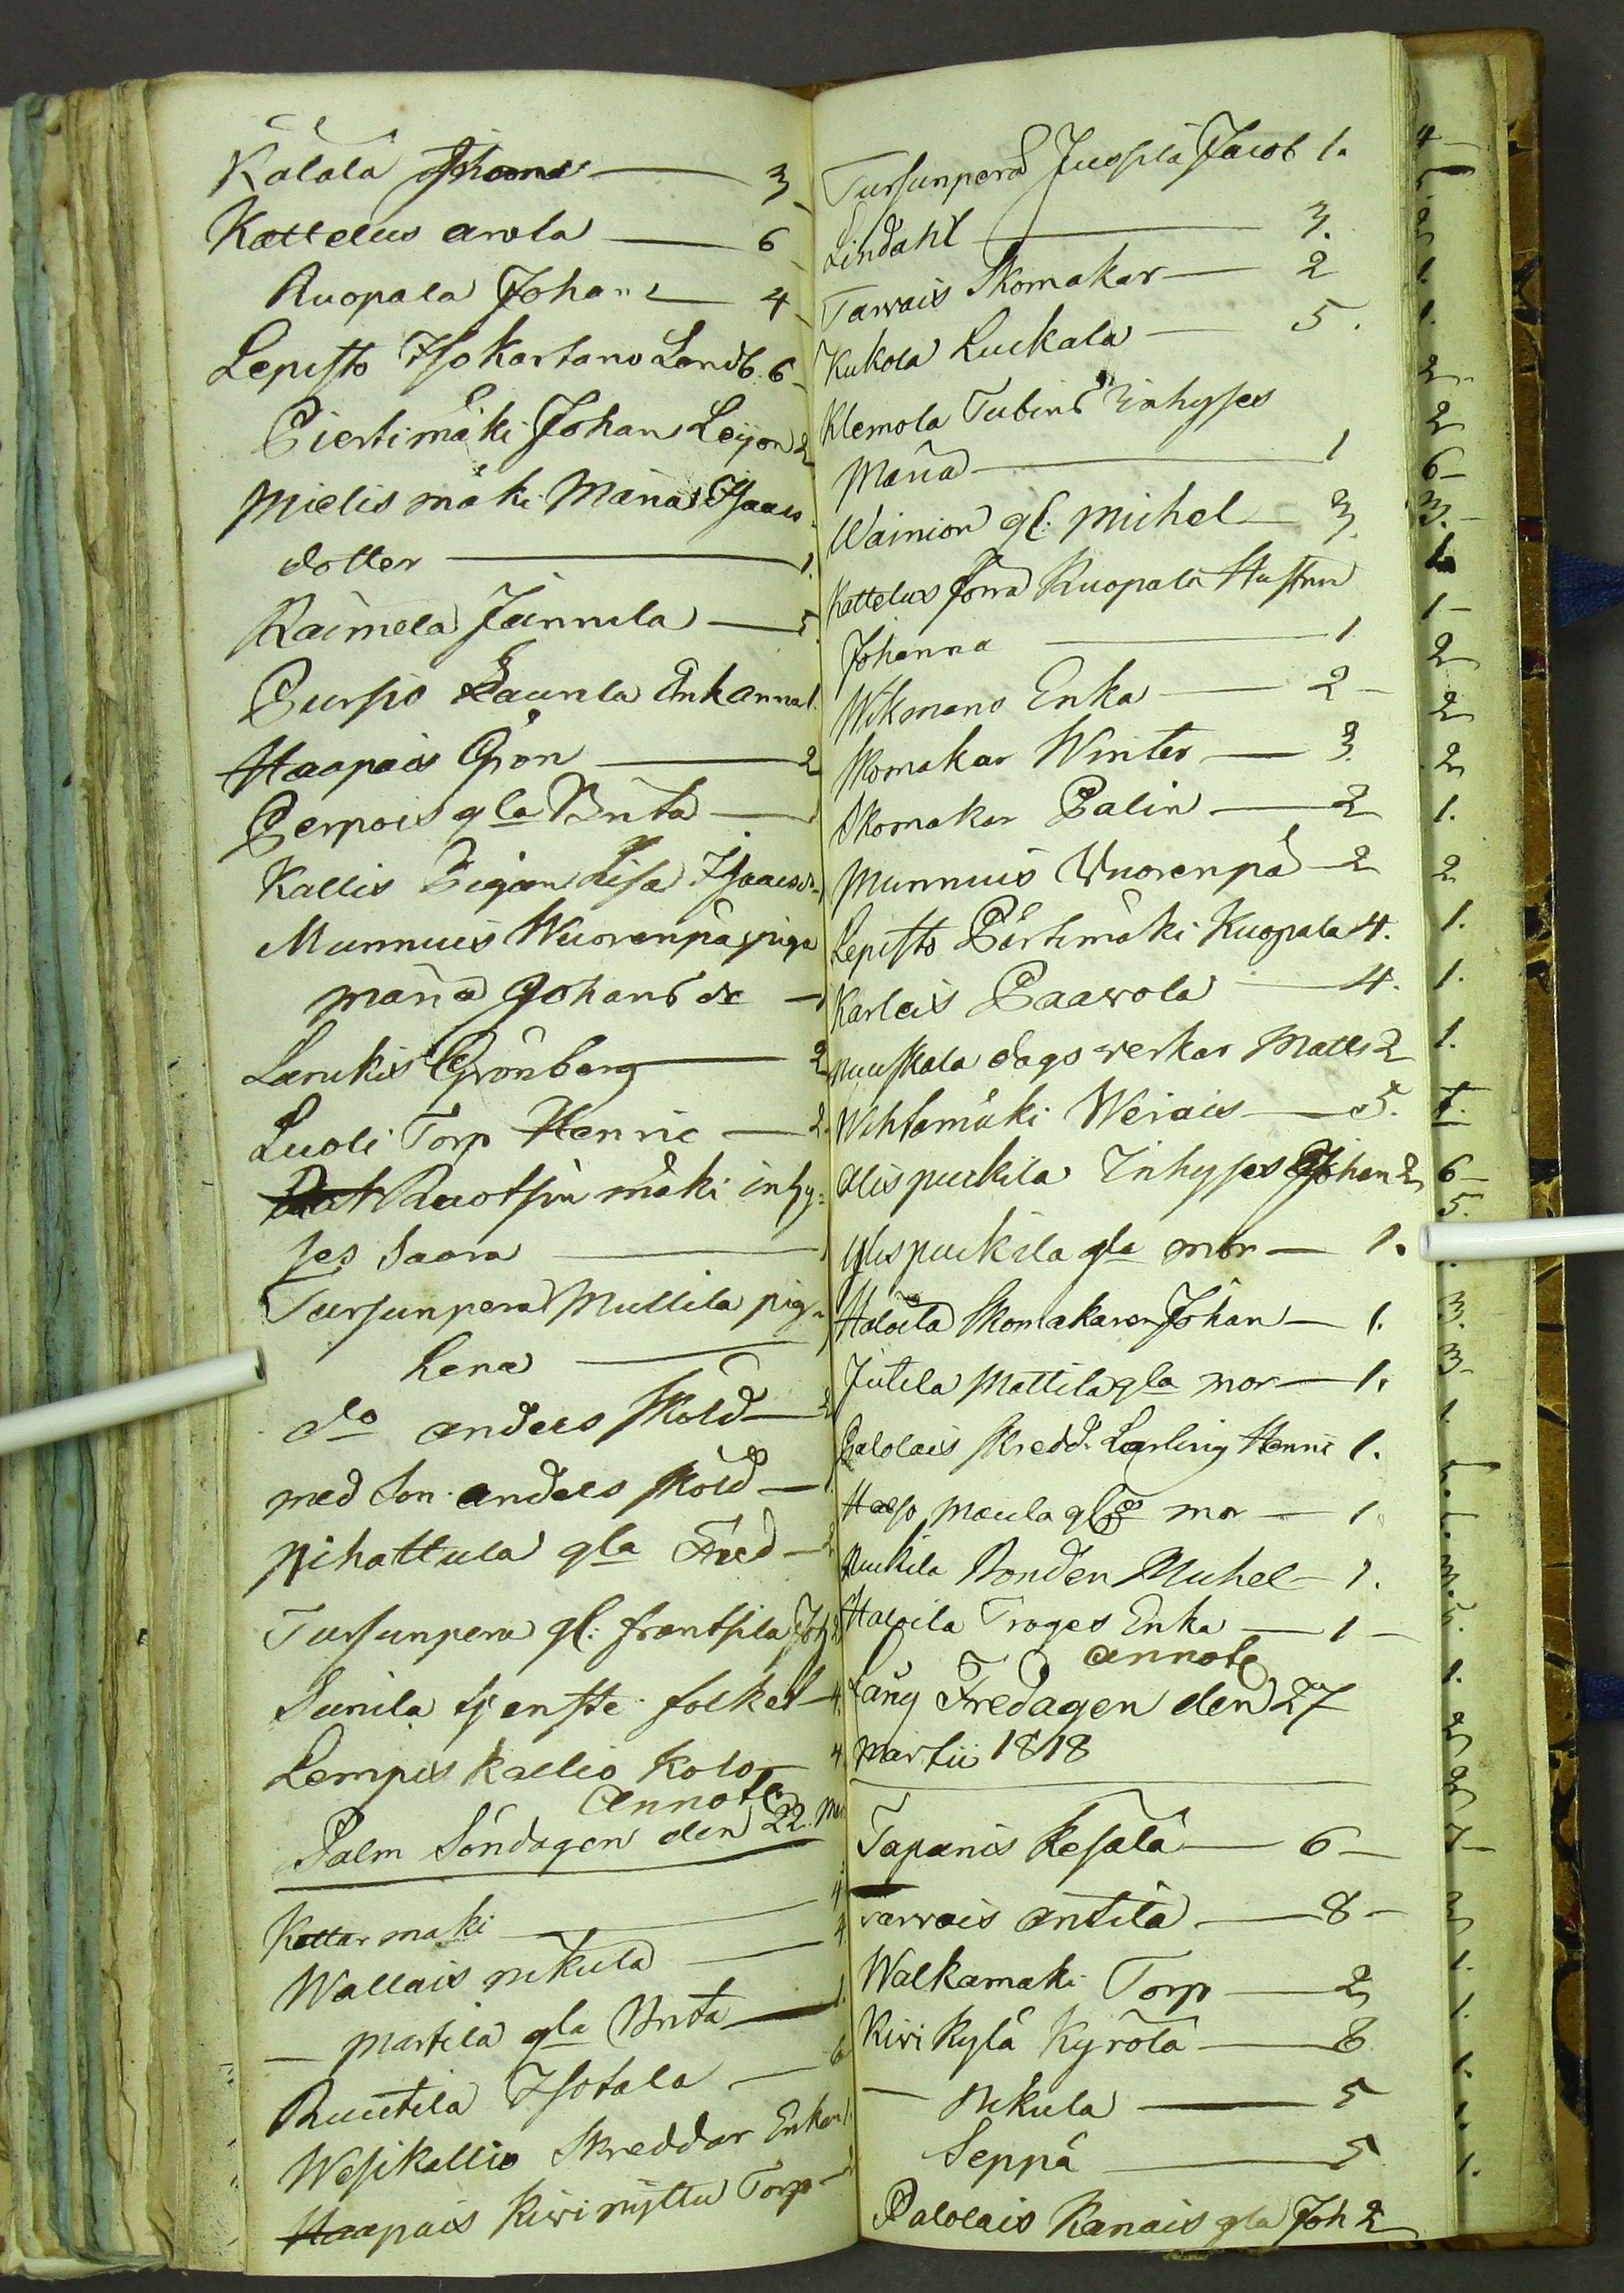 Kålala Johans — 3
Kattelus arola — 6
Ruopala Johan — 4
Lepisto Isokartano Landb. 6
Piertimäki Johan Leijon 2
Mielismäki Maria Isaacs
dotter — 1.
Raimela Jannila — 5.
Pursio Launla Enk anna 1.
Haapais Grön — 2
Perpois gla Brita — 1
Kallis Pigan Lisa Isaacsd.
Munnuis Wuorenpä piga
Maria Johans dr — 1
Laukis Grönberg — 2
Luoli Torp Henric — 2.
Ruotsinmäki inhy:
ses Saara — 1
Tursunperä Mullila pig
Lena —
do anders Skold — 2
med Son anders Skold — 1
Nihattula gla Fred — 2
Tursunpera gl: frantsila Joh
Sunila tjenste folket — 4.
Lempis kallio Kolo — 4.
annote
Palm Söndagen den 22. Mar
Kattarmaki — 4
Wallais Nikula — 4
— Martila gla Brita — 1.
Ruutila Isotala — 6
Wesikallio Skreddar Enkan 1.
Haapais Kiwiniyttu Torp
Tursunperä Jussila Jacob 1.
Lindahl — 3.
Tarvais Skomakar — 2
Kukola Luckala — 5.
Klemola Tubins Inhyses
Maria — 1
Wainion gl: Michel — 3.
Kattelus förra Ruopala Hustrun
Johanna — 1
Wikmans Enka — 2 -
Skomakar Winter — 3.
Skomakar Palin — 2
Munnuis Wuorenpä — 2
Lepisto Pärtimäki Kuopala 4.
Karlais Paavola — 4.
Nuuskala dags verkar Matts 2
Wihtamäki Weiais — 5.
Alis puckila Inhyses Johan 2
Ylis puckila gla mor — 1.
Haloila Skomakaren Johan — 1.
Jutila Mattila gla mor — 1.
Palolais Skredd. Lärling Henric 1.
Haljo Maula gla mor — 1
Puckila Bonden Michel — 1.
Haloila Troges Enka — 1 -
annote
Lång Fredagen den 27
Martii 1818
Tapanis Kesälä — 6 -
Tarvais antila — 8 -
Walkamaki Torp — 2
Kiwi kylä Kyrölä — 8
— Nikula — 5
Seppä — 5
Palolais Kanais gla Joh 2